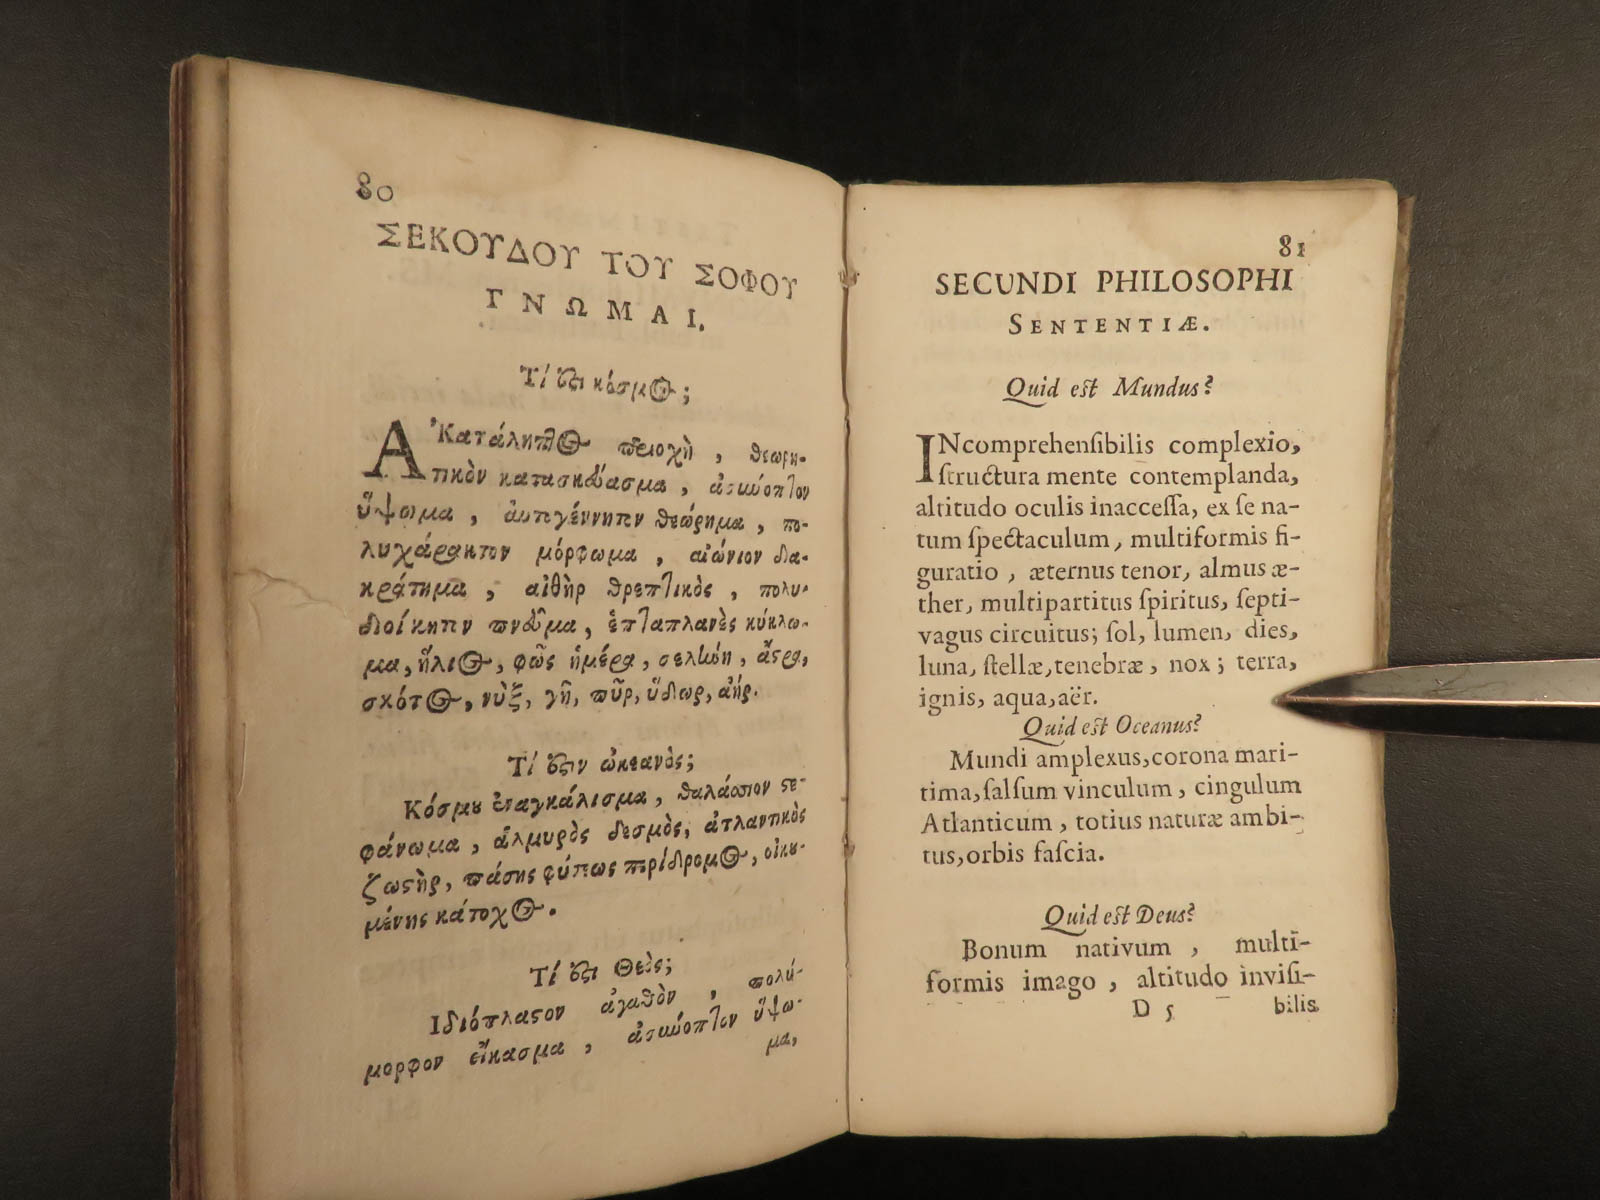 80
ΣΕΚΟΥΔΟΥ ΤΟΥ ΣΟΦΟΥ
ΓΝΩΜΑΙ.
Τί ἐςι κόσμος;
ἈΚατάληπτος περιοχὴ, θεωρη-
τικὸν κατασκεύασμα, ἀσκύοπτον
ὕψωμα, αὐτογέννητον θεώρημα, πο-
λυχάρακτον μόρφωμα, αἰώνιον δια-
κράτημα, αἰθὴρ θρεπτικὸς, πολυ-
διοίκητον πνεῦμα, ἑπταπλανὲς κύκλω-
μα, ἥλιος, φῶς ἡμέρα, σελήνη, ἄςρα,
σκότος, νὺξ, γῆ, πῦρ, ὕδωρ, ἀήρ.
Τί ἐςιν ὠκεανὸς;
Κόσμου ἐναγκάλισμα, θαλάσσιον ςε-
φάνωμα, ἁλμυρὸς δεσμὸς, ἀτλαντικὸς
ζωςὴρ, πάσης φύσεως περίδρομος, οἰκου-
μένης κάτοχος.
Τί ἐςι Θεὸς;
Ἰδιόπλαςον ἀγαθὸν, πολύ-
μορφον εἴκασμα, ἀσκύοπτον ὕψω-
μα,
81
SECUNDI PHILOSOPHI
SENTENTIÆ.
Quid est Mundus?
INcomprehenſibilis complexio,
ſtructura mente contemplanda,
altitudo oculis inacceſſa, ex ſe na-
tum ſpectaculum, multiformis fi-
guratio, æternus tenor, almus æ-
ther, multipartitus ſpiritus, ſepti-
vagus circuitus; ſol, lumen, dies,
luna, ſtellæ, tenebræ, nox; terra,
ignis, aqua, aër.
Quid est Oceanus?
Mundi amplexus, corona mari-
tima, ſalſum vinculum, cingulum
Atlanticum, totius naturæ ambi-
tus, orbis faſcia.
Quid est Deus?
Bonum nativum, multi-
formis imago, altitudo inviſi-
D 5 bilis